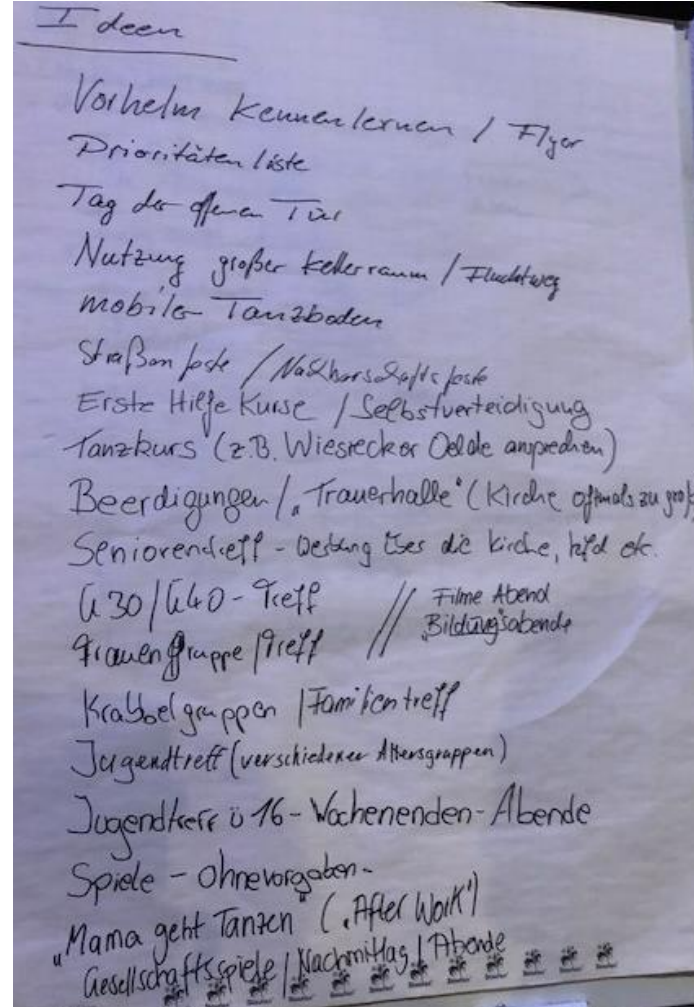 Ideen
Vorhelm Kennenlernen / Flyer
Prioritätenliste
Tag der offenen Tür
Nutzung großer Kellerraum / Fluchtweg
mobiler Tanzboden
Straßenfeste / Nachbarschaftsfeste
Erste Hilfe Kurse / Selbstverteidigung
Tanzkurs (z.B. Oelde ansprechen)
Beerdigungen / „Trauerhalle“ (Kirche oftmals zu groß
Seniorentreff - Werbung über die Kirche, etc.
Ü30/Ü40-Treff // Filme Abend
Frauengruppe / Treff // „Bildungsabende
Krabbelgruppen / Familientreff
Jugendtreff (verschiedener Altersgruppen)
Jugendtreff ü 16 - Wochenenden - Abende
Spiele - ohne vorgaben -
„Mama geht Tanzen“ („After Work“)
Gesellschaftsspiele / Nachmittag / Abende